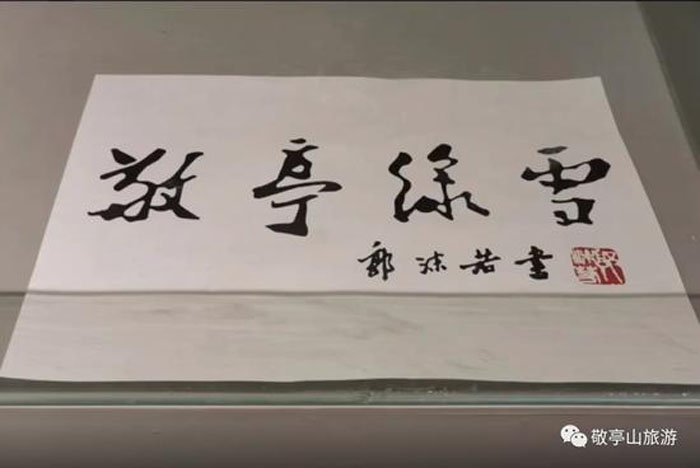 敬亭绿雪
郭沫若书
敬亭山旅游